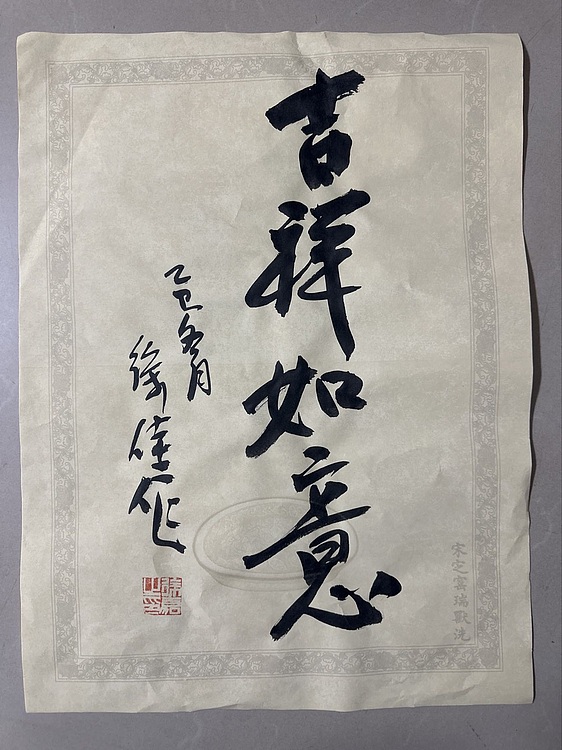 宋定窯瑞獸洗
吉祥如意
乙巳冬月
徐佳作